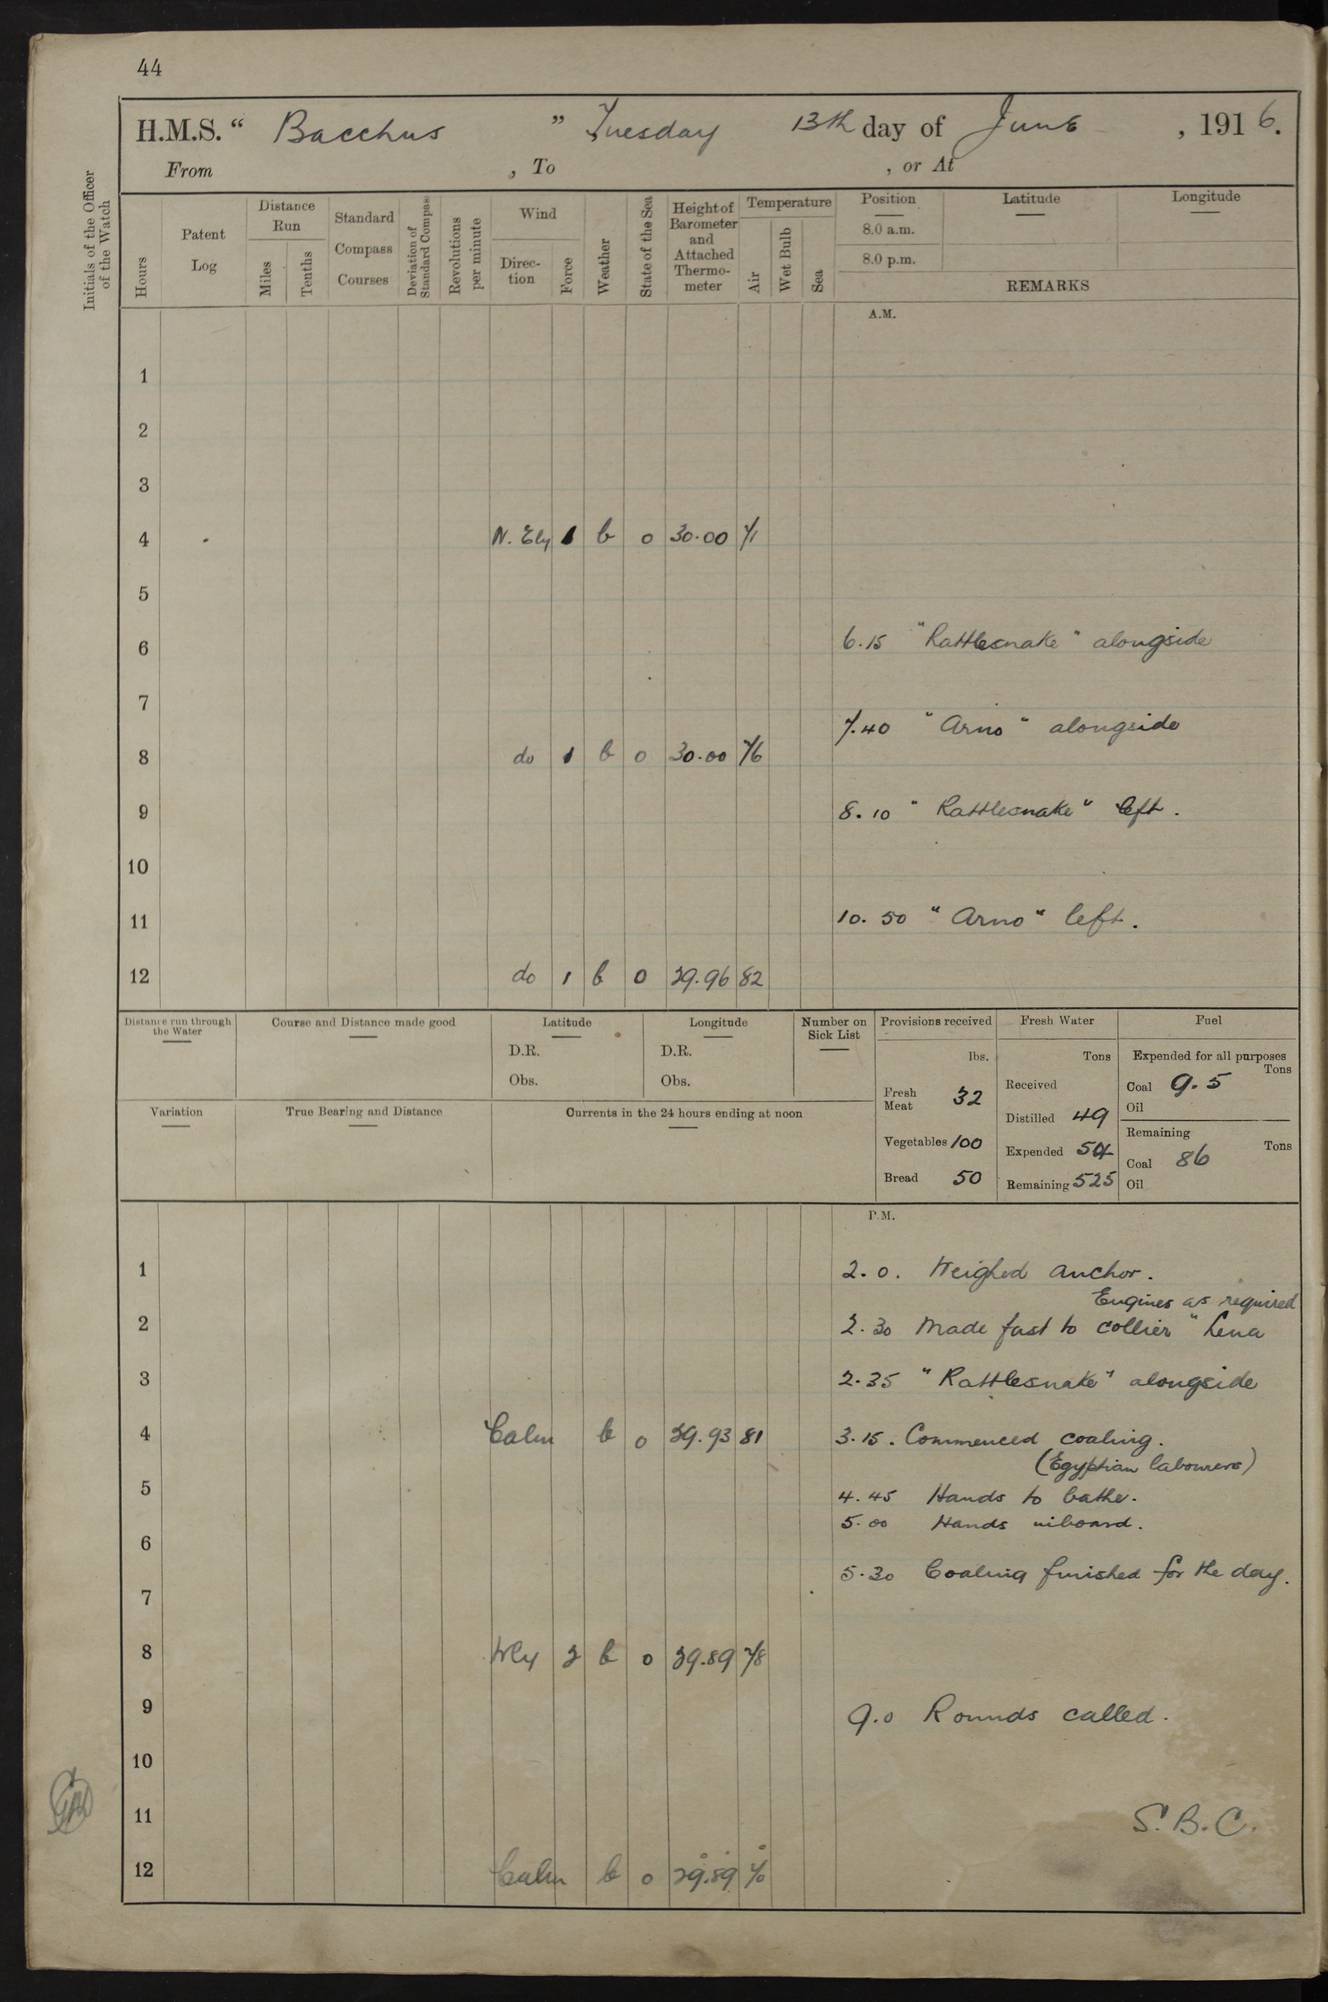 44
H.M.S. “ Bacchus ” Tuesday 13th day of June , 1916.
From , To , or At
Initials of the Officer of the Watch
Hours
Patent Log
Distance Run
Miles
Tenths
Standard Compass Courses
Deviation of Standard Compass
Revolutions per minute
Wind
Direction
Force
Weather
State of the Sea
Height of Barometer and Attached Thermometer
Temperature
Air
Wet Bulb
Sea
Position
8.0 a.m.
8.0 p.m.
Latitude
Longitude
REMARKS
A.M.
1
2
3
4 N. Ely 1 b 0 30.00 71
5
6 6.15 "Rattlesnake" alongside
7
7.40 "Arno" alongside
8 do 1 b 0 30.00 76
9 8.10 "Rattlesnake" left.
10
11 10.50 "Arno" left.
12 do 1 b 0 29.96 82
Distance run through the Water
Course and Distance made good
Latitude
D.R.
Obs.
Longitude
D.R.
Obs.
Number on Sick List
Provisions received
lbs.
Fresh Meat 32
Vegetables 100
Bread 50
Fresh Water
Tons
Received
Distilled 49
Expended 54
Remaining 525
Fuel
Expended for all purposes
Tons
Coal 9.5
Oil
Remaining
Tons
Coal 86
Oil
Variation
True Bearing and Distance
Currents in the 24 hours ending at noon
P.M.
1 2.0. Weighed anchor.
Engines as required
2 2.30 Made fast to collier "Lena
3 2.35 "Rattlesnake" alongside
4 Calm b 0 29.93 81 3.15. Commenced coaling.
(Egyptian labourers)
5 4.45 Hands to bathe.
5.00 Hands inboard.
6
5.30 Coaling finished for the day.
7
8 Wly 2 b 0 29.89 78
9 9.0 Rounds called.
10
11 S.B.C.
12 Calm b 0 29.89 70